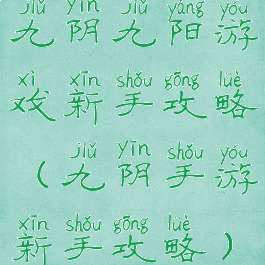 jiǔ yīn jiǔ yáng yóu
九阴九阳游
xì xīn shǒu gōng lüè
戏新手攻略
jiǔ yīn shǒu yóu
（九阴手游
xīn shǒu gōng lüè
新手攻略）